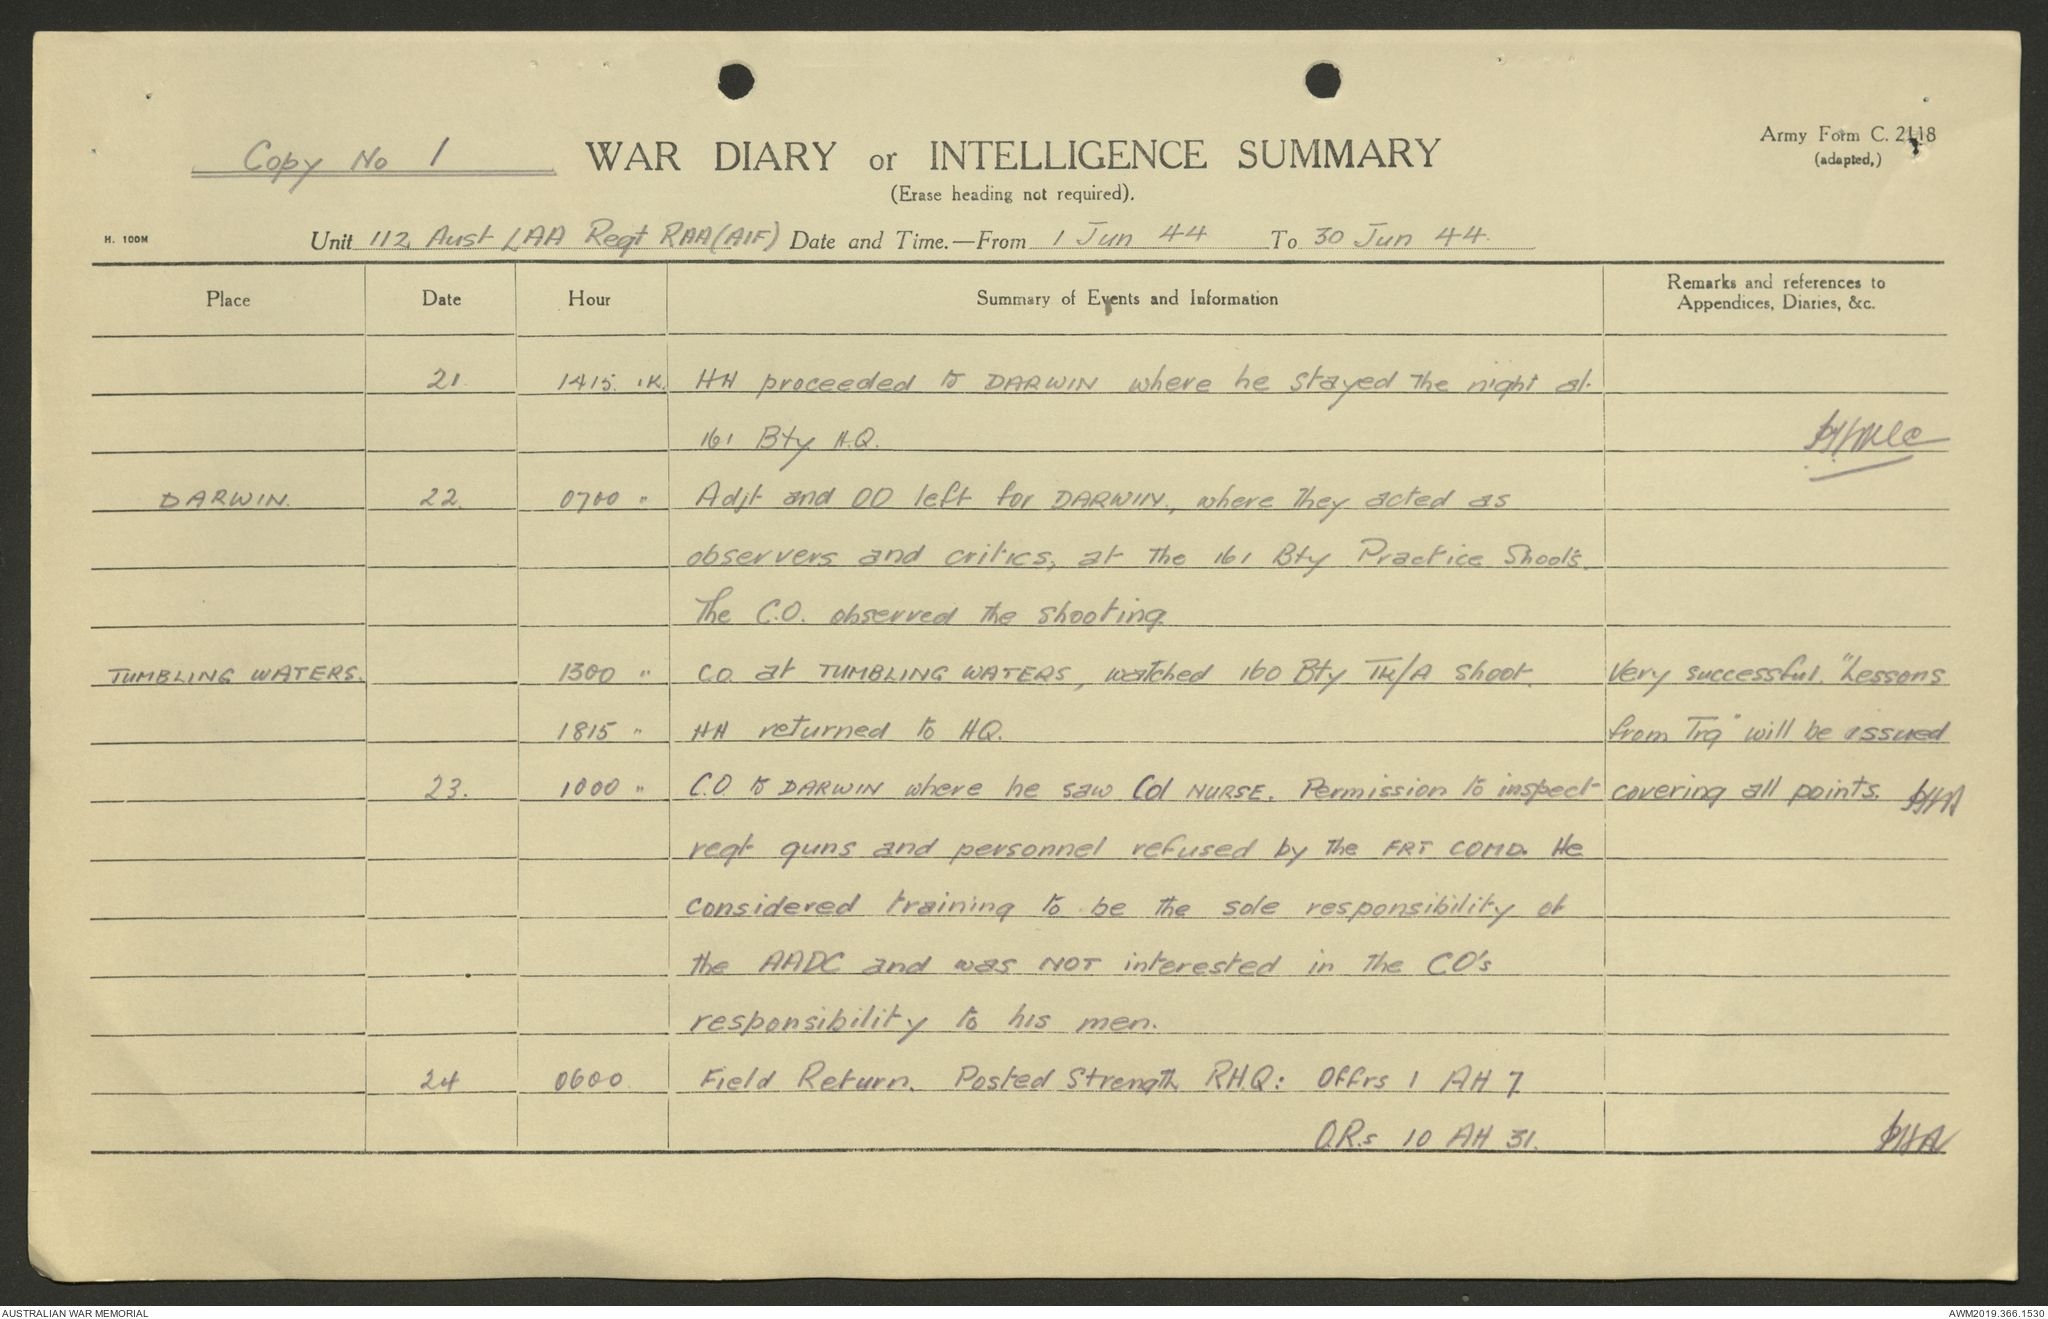 Copy No 1
WAR DIARY or INTELLIGENCE SUMMARY
Army Form C. 2118
(adapted,)
(Erase heading not required).
H. 100M
Unit 112 Aust LAA Regt RAA (AIF) Date and Time.—From 1 Jun 44 To 30 Jun 44.
Place Date Hour Summary of Events and Information Remarks and references to Appendices, Diaries, &c.
21 1415 IK. HH proceeded to DARWIN where he stayed the night at
161 Bty H.Q.
DARWIN. 22. 0700 " Adjt and OO left for DARWIN., where they acted as
observers and critics, at the 161 Bty Practice Shoots.
The C.O. observed the shooting.
TUMBLING WATERS. 1300 " CO. at TUMBLING WATERS, watched 160 Bty TK/A Shoot. Very successful. "Lessons
1815 " HH returned to HQ. from Trg" will be issued
23. 1000 " C.O. to DARWIN where he saw Col NURSE. Permission to inspect covering all points.
regt guns and personnel refused by the FRT COMD. He
considered training to be the sole responsibility of
the AADC and was NOT interested in the CO's
responsibility to his men.
24 0600 Field Return. Posted Strength RHQ: Offrs 1 AH 7.
O.R.s 10 AH 31.
AUSTRALIAN WAR MEMORIAL
AWM2019.366.1530